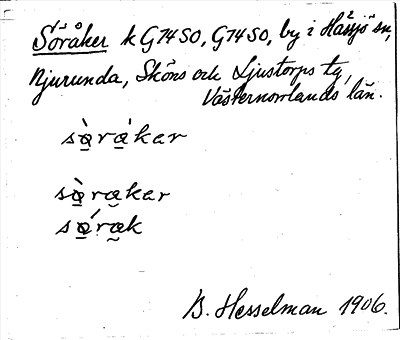 Söråker k G74SO, G74SO, by i Hässjö sn,
Njurunda, Sköns och Ljustorps tg,
Västernorrlands län.
sə̀rákar
sə̀rakar
sə́rak
B. Hesselman 1906.